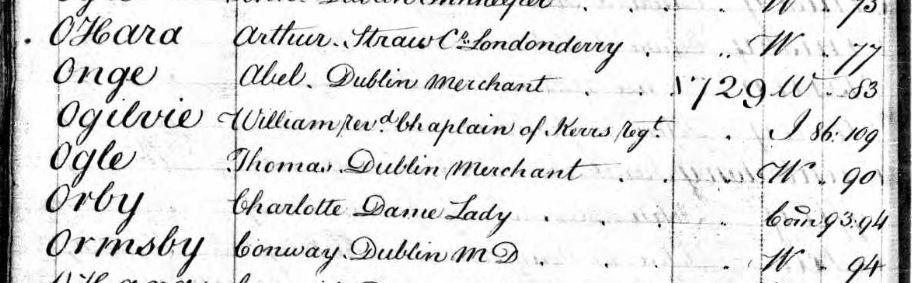 Innkeeper . . W. 73
O'Hara Arthur. Straw Co. Londonderry . . W. . 77
Onge Abel. Dublin Merchant . . . 1729 W . . 83
Ogilvie William, revd Chaplain of Kerrs regt. . I 86. 109
Ogle Thomas. Dublin Merchant . . . . W. . 90
Orby Charlotte Dame Lady . . . Com 93. 94
Ormsby Conway. Dublin M D . . . . W. . 94